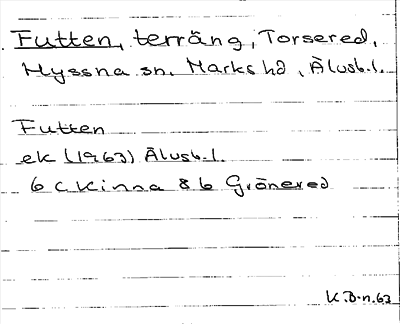 Futten, terräng, Torsered,
Hyssna sn. Marks hd, Älvsb.l.
Futten
ek (1963) Älvsb.l.
6 c Kinna 8 b Grönered
K.B-n.63